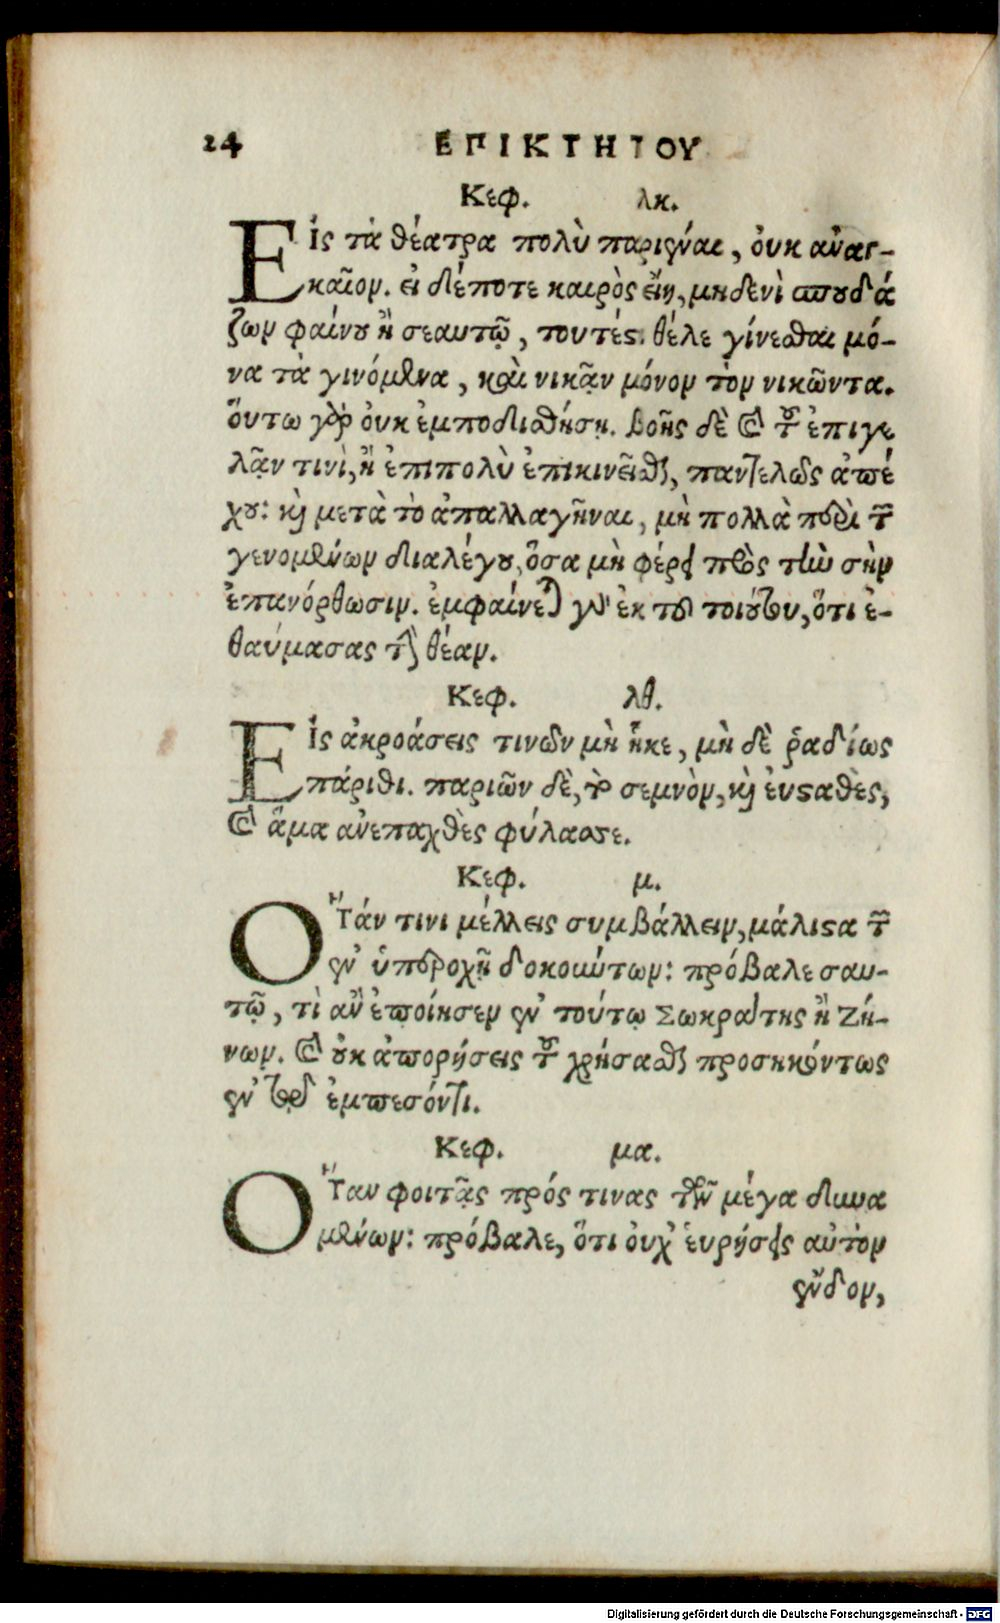 24 ΕΠΙΚΤΗΤΟΥ
Κεφ. λκ.
Εἰς τὰ θέατρα πολὺ παριέναι, ὀυκ ἀναγ-
καῖον. εἰ δέποτε καιρὸς εἴη, μηδενὶ σπουδά
ζων φαίνου ἢ σεαυτῷ, τουτές. θέλε γίνεσθαι μό-
να τὰ γινόμενα, καὶ νικᾷν μόνον τὸν νικῶντα.
ὅυτω γὰρ ὀυκ ἐμποδισθήσῃ. βοῆς δὲ καὶ τοῦ ἐπιγε
λᾷν τινὶ, ἢ ἐπιπολὺ ἐπικινεῖσθαι, παντελῶς ἀπέ
χου: καὶ μετὰ τὸ ἀπαλλαγῆναι, μὴ πολλὰ περὶ τῶν
γενομένων διαλέγου, ὅσα μὴ φέρει πρὸς τὴν σὴν
ἐπανόρθωσιν. ἐμφαίνεται γὰρ ἐκ τοῦ τοιούτου, ὅτι ἐ-
θαύμασας τὴν θέαν.
Κεφ. λθ.
Εἰς ἀκροάσεις τινῶν μὴ ἧκε, μὴ δὲ ῥαδίως
πάριθι. παριῶν δὲ, τὸ σεμνὸν, καὶ ἐυσαθὲς,
καὶ ἅμα ἀνεπαχθὲς φύλασσε.
Κεφ. μ.
Ὅτάν τινι μέλλεις συμβάλλειν, μάλιστα τῶν
ἐν ὑπεροχῇ δοκούντων: πρόβαλε σαυ-
τῷ, τὶ ἂν ἐποίησεν ἐν τούτῳ Σωκράτης ἢ Ζή-
νων. καὶ ουκ ἀπορήσεις τοῦ χρήσασθαι προσηκόντως
ἐν τῷ ἐμπεσόντι.
Κεφ. μα.
Ὅταν φοιτᾷς πρός τινας τῶν μέγα δυνα
μένων: πρόβαλε, ὅτι ὀυχ ἑυρήσεις αὐτὸν
ἔνδον,
Digitalisierung gefördert durch die Deutsche Forschungsgemeinschaft - DFG